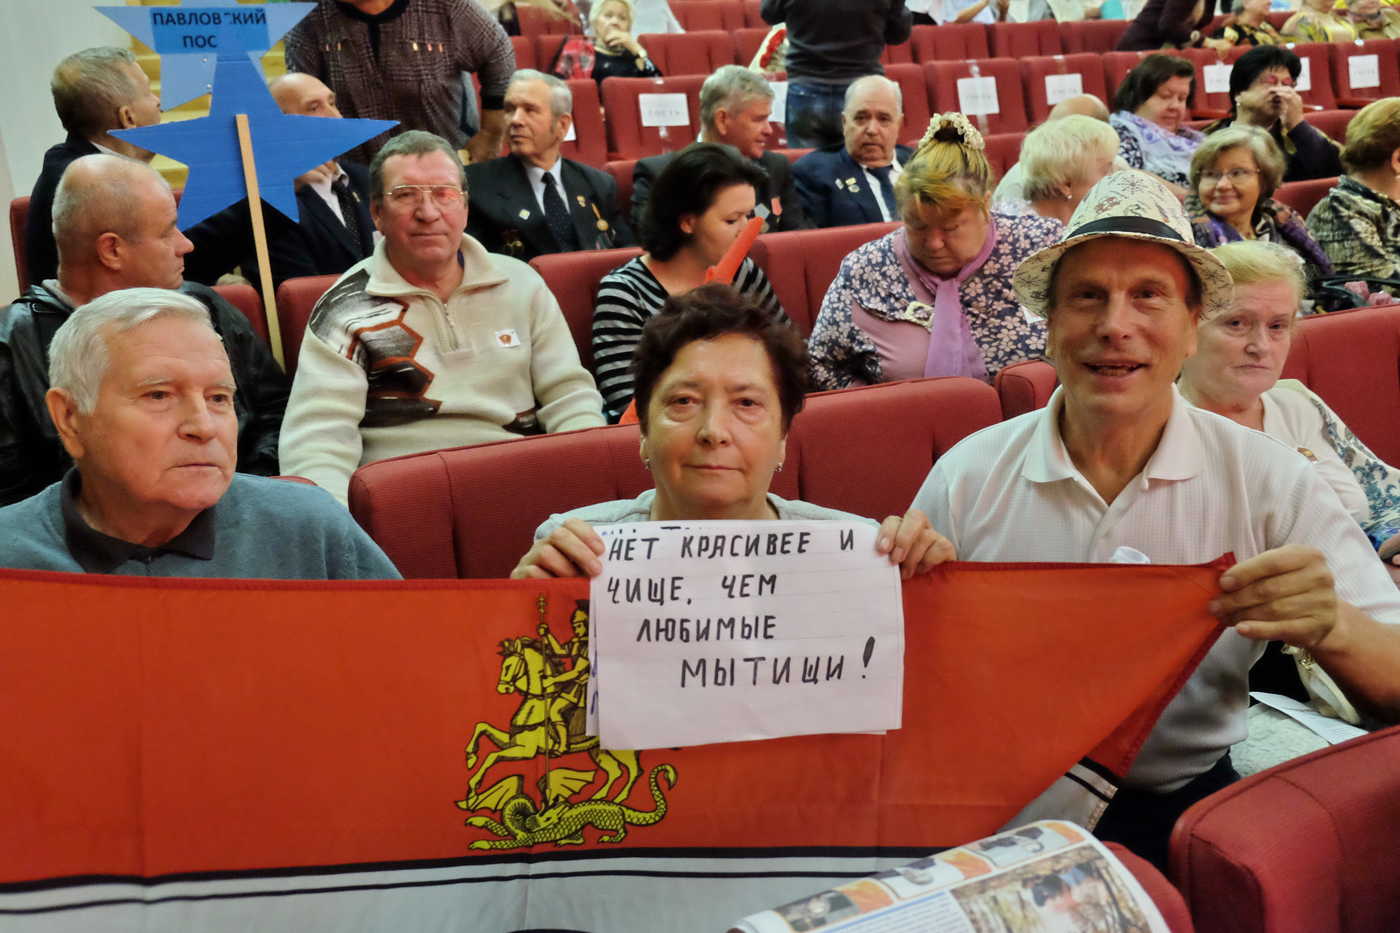 ПАВЛОВСКИЙ
ПОС
НЕТ КРАСИВЕЕ И
ЧИЩЕ, ЧЕМ
ЛЮБИМЫЕ
МЫТИЩИ!